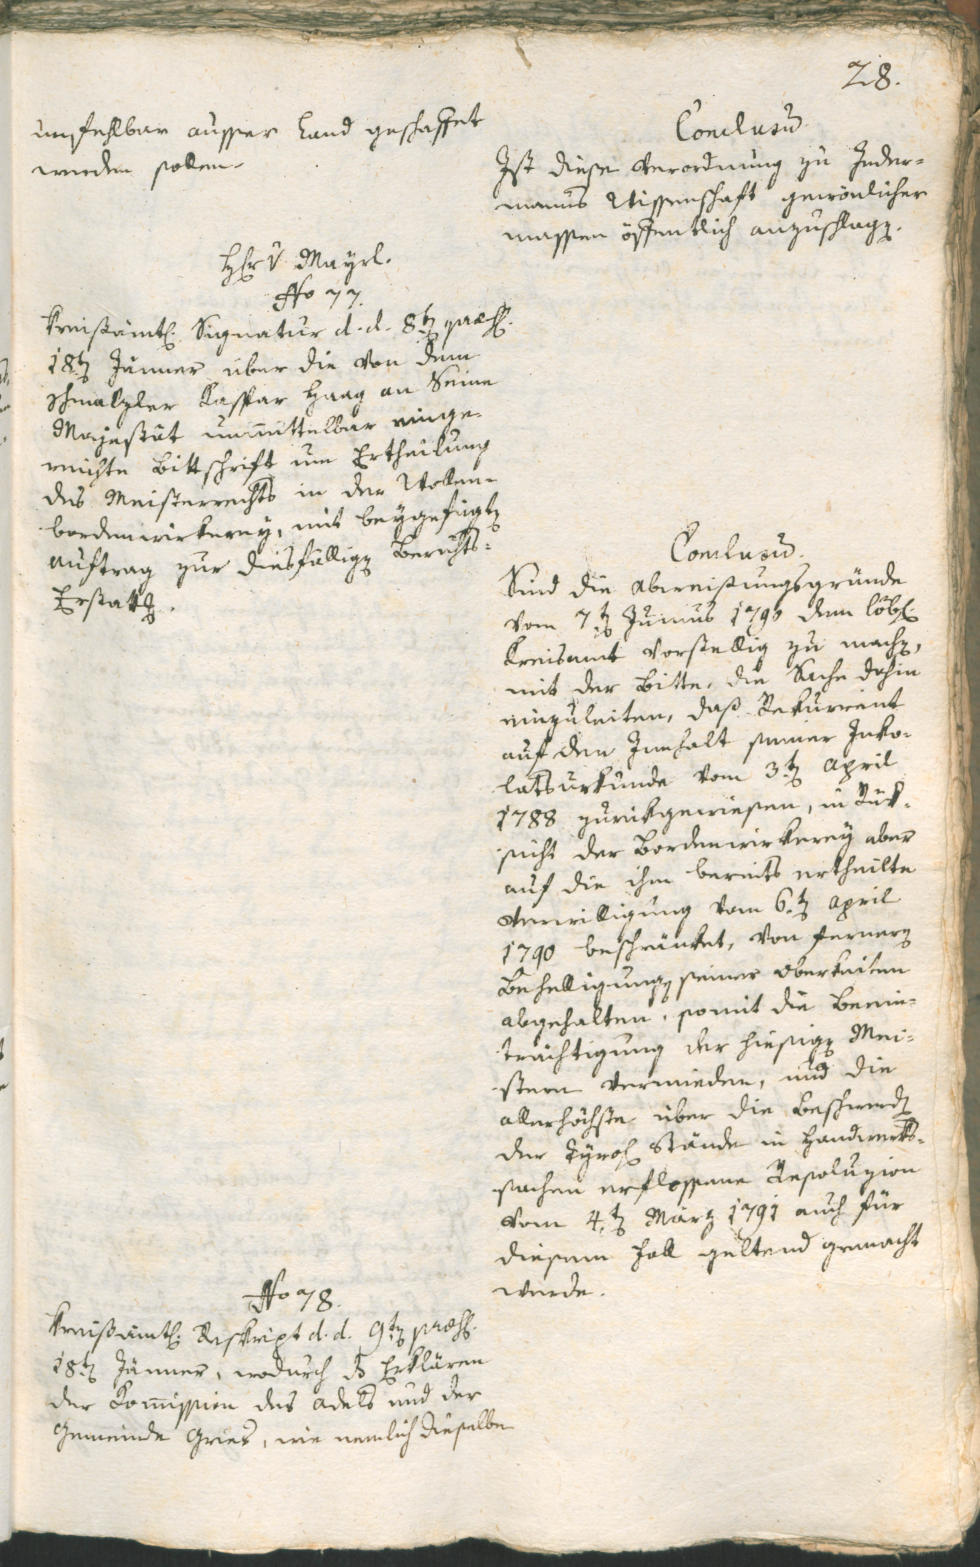 28.
unfehlbar ausser Land geschaffet
werden sollen.
Conclusum
Ist diese Verordnung zu Jeder-
manns Wissenschaft gewönlicher
massen öffentlich anzuschlagen.
Hr v Mayrl.
No 77.
Kreisämtl. Signatur d. d. 8ten præs.
18ten Jänner über die von dem
Schmalzler Kaspar Haag an Seine
Majestät unmittelbar einge-
reichte Bittschrift um Ertheilung
des Meisterrechts in der Wollen-
bordenwirkerey, mit beygefügten
Auftrag zur diesfälligen Berichts-
Erstattg.
Conclusum.
Sind die Abweisungsgründe
vom 7ten Junius 1790 dem löbl.
Kreisamt vorstellig zu machen,
mit der Bitte, die Sache dahin
einzuleiten, daß Rekurrent
auf den Innhalt seiner Inko-
latsurkunde vom 3ten April
1788 zurückgewiesen, in Rük-
sicht der Bordenwirkerey aber
auf die ihm bereits ertheilte
Verwilligung vom 6ten April
1790 beschränket, von fernern
Behelligungen seiner Oberkeiten
abgehalten, somit die Beein-
trächtigung der hiesigen Mei-
stern vermieden, und die
allerhöchste über die Beschwerden
der Tyrol. Stände in Handwerks-
sachen erflossene Resoluzion
vom 4ten März 1791 auch für
diesem Fall geltend gemacht
werde.
No 78.
Kreisämtl. Reskript d. d. 9ten præs.
18ten Jänner, wodurch das Erklären
der Kommission des Adels und der
Gemeinde Gries, wie nemlich dieselbe